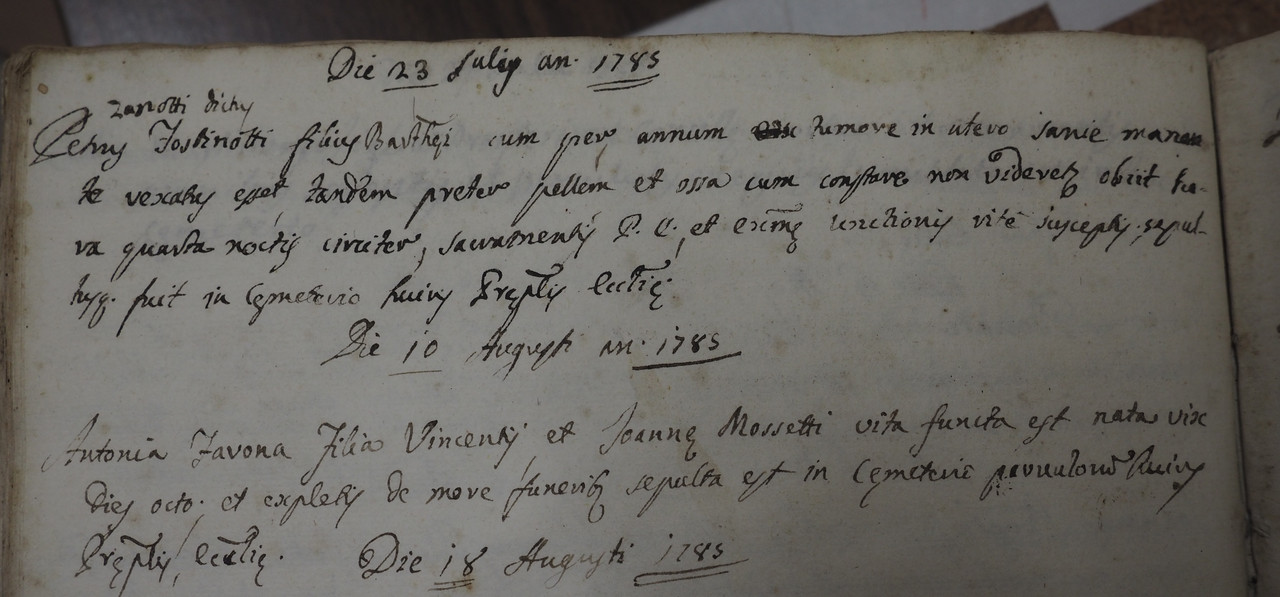 Die 23 Julij an. 1785
Zanotti dictus
Petrus Tostinotti filius Barthęi cum per annum tumore in utero sanie manan
te vexatus esset tandem preter pellem et ossa cum constare non videretʒ obiit ho-
ra quarta noctis circiter, sacramentis P. E., et exm̃ę unctionis vite susceptis, sepul-
tusq. fuit in Cęmeterio huius Pręp̃tis Eccl̃ię.
Die 10 Augusti an. 1785
Antonia Favona Filia Vincentij et Joannę Mossetti vita functa est nata vix
dies octo. et expletis de more funeribʒ sepulta est in Cęmeterio parvulorũ huius
Pręp̃tis, Eccl̃ię. Die 18 Augusti 1785